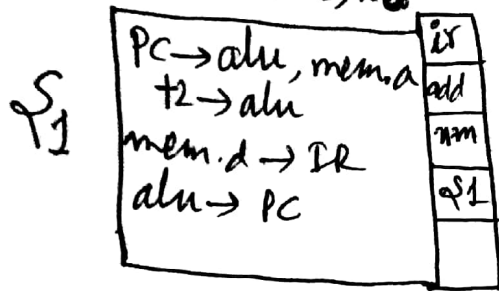 S1
PC → alu, mem.a
+2 → alu
mem.d → IR
alu → PC
ir
add
nm
S1